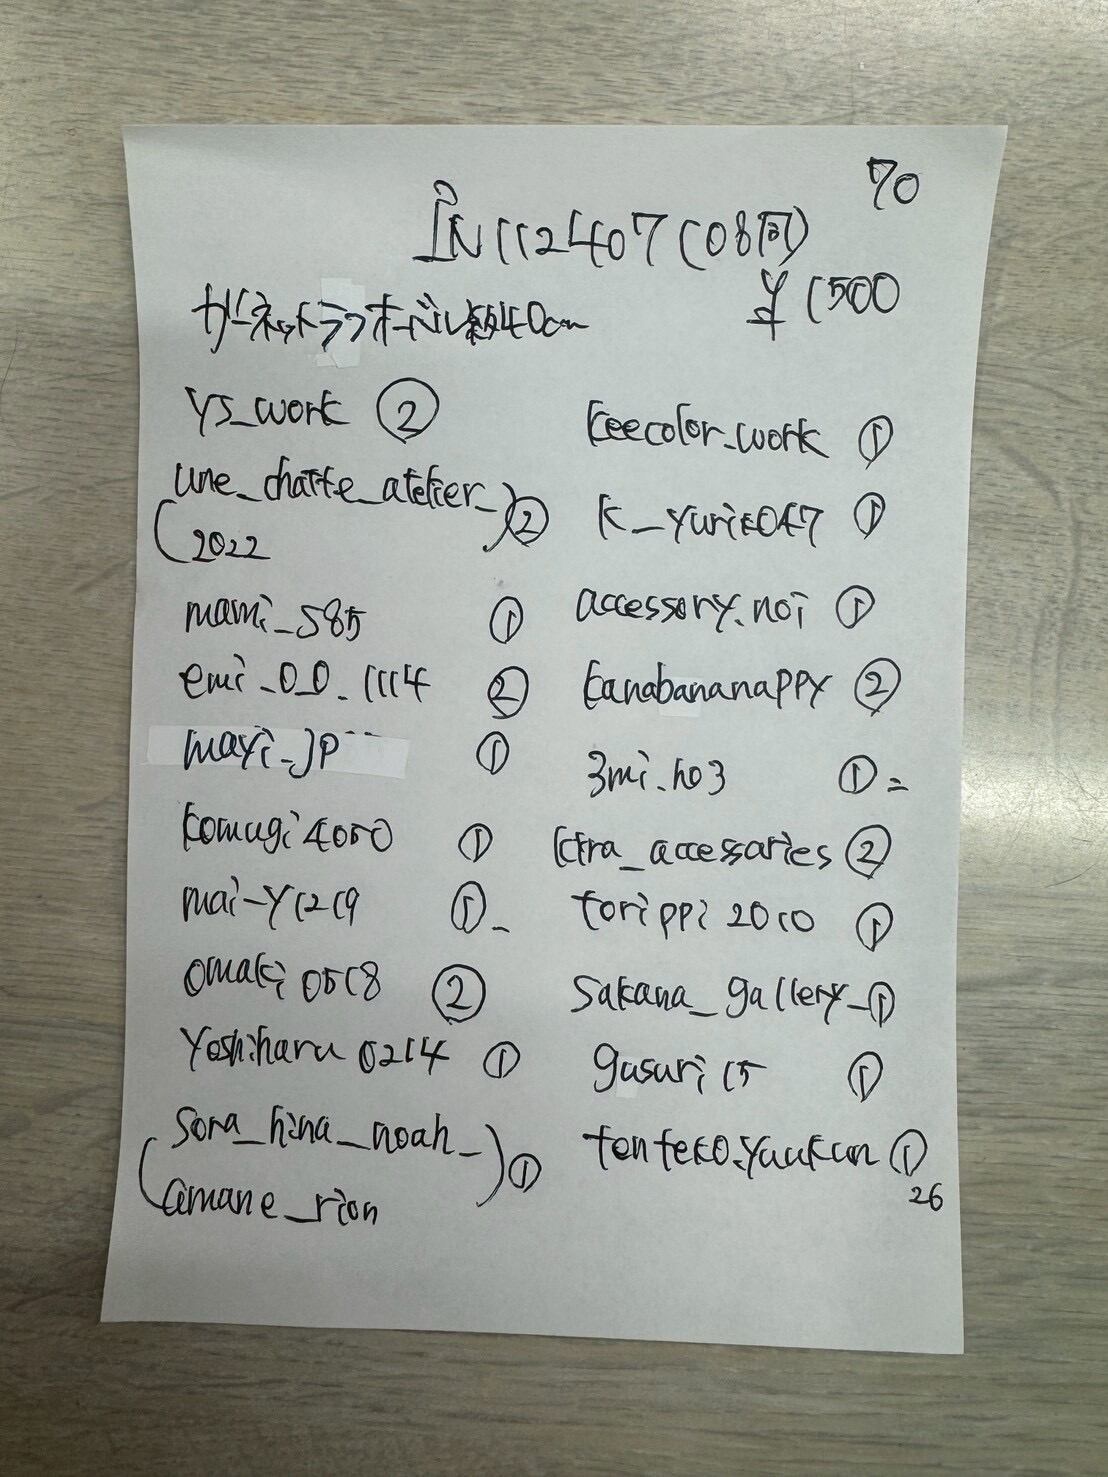 70
IN112407(08同)
¥1500
ガーネットラフオーバル約40cm
ys_work ②
(une_chatte_atelier_
2022) ②
mami_585 ①
emi_0_0_1114 ②
mayi_jp ①
komugi4050 ①
mai-y1219 ①
omaki0518 ②
Yoshiharu0214 ①
(sora_hina_noah_
amane_rion) ①
keecolor_work ①
k_yuriko47 ①
accessory.noi ①
kanabananappy ②
3mi.ho3 ①
ktra_accessaries ②
torippi2010 ①
sakana_gallery_ ①
gusuri15 ①
tenteko.yuukun ①
26